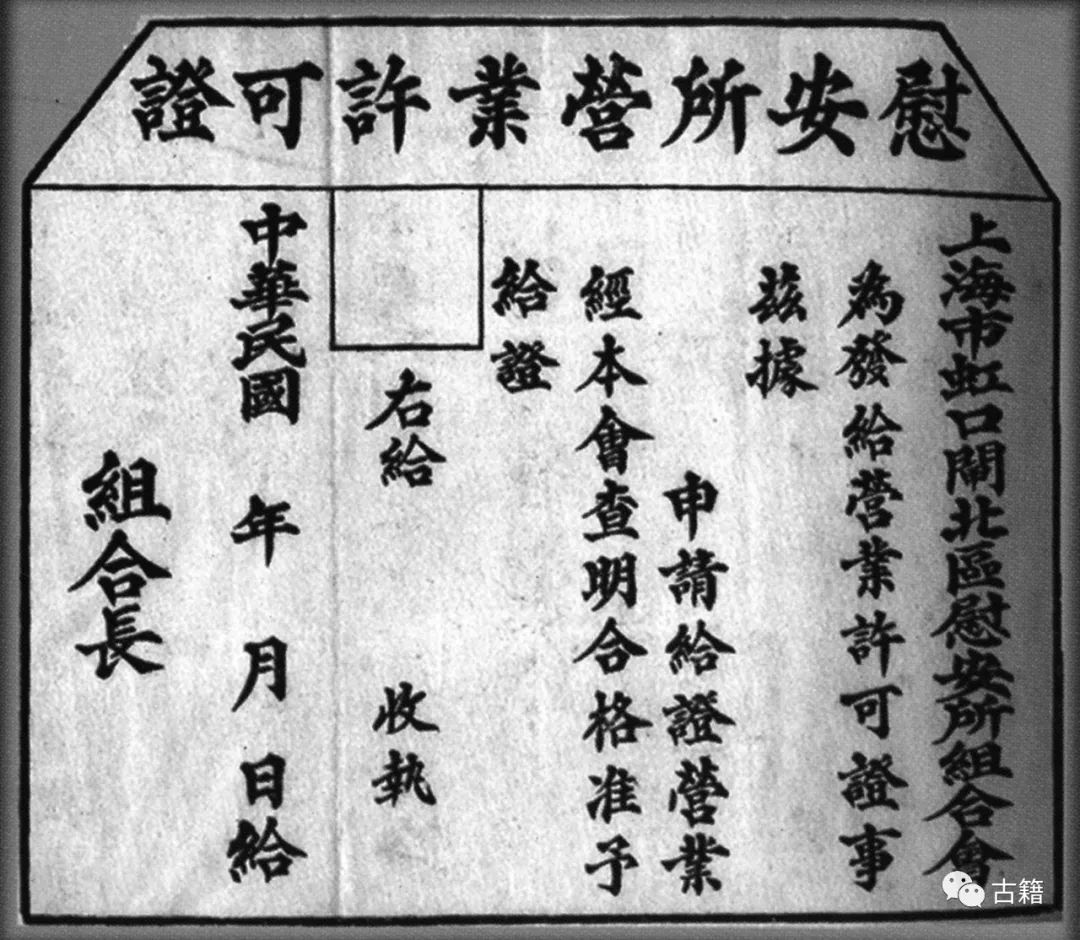 慰安所營業許可證
上海市虹口閘北區慰安所組合會
為發給營業許可證事
茲據
申請給證營業
經本會查明合格准予
給證
右給 收執
中華民國 年 月 日給
組合長
古籍